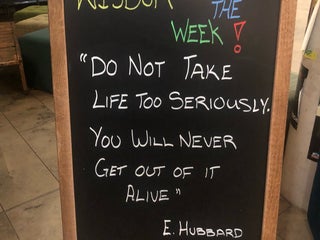 WISDOM
THE
WEEK!
"DO NOT TAKE
LIFE TOO SERIOUSLY.
YOU WILL NEVER
GET OUT OF IT
ALIVE"
E. HUBBARD